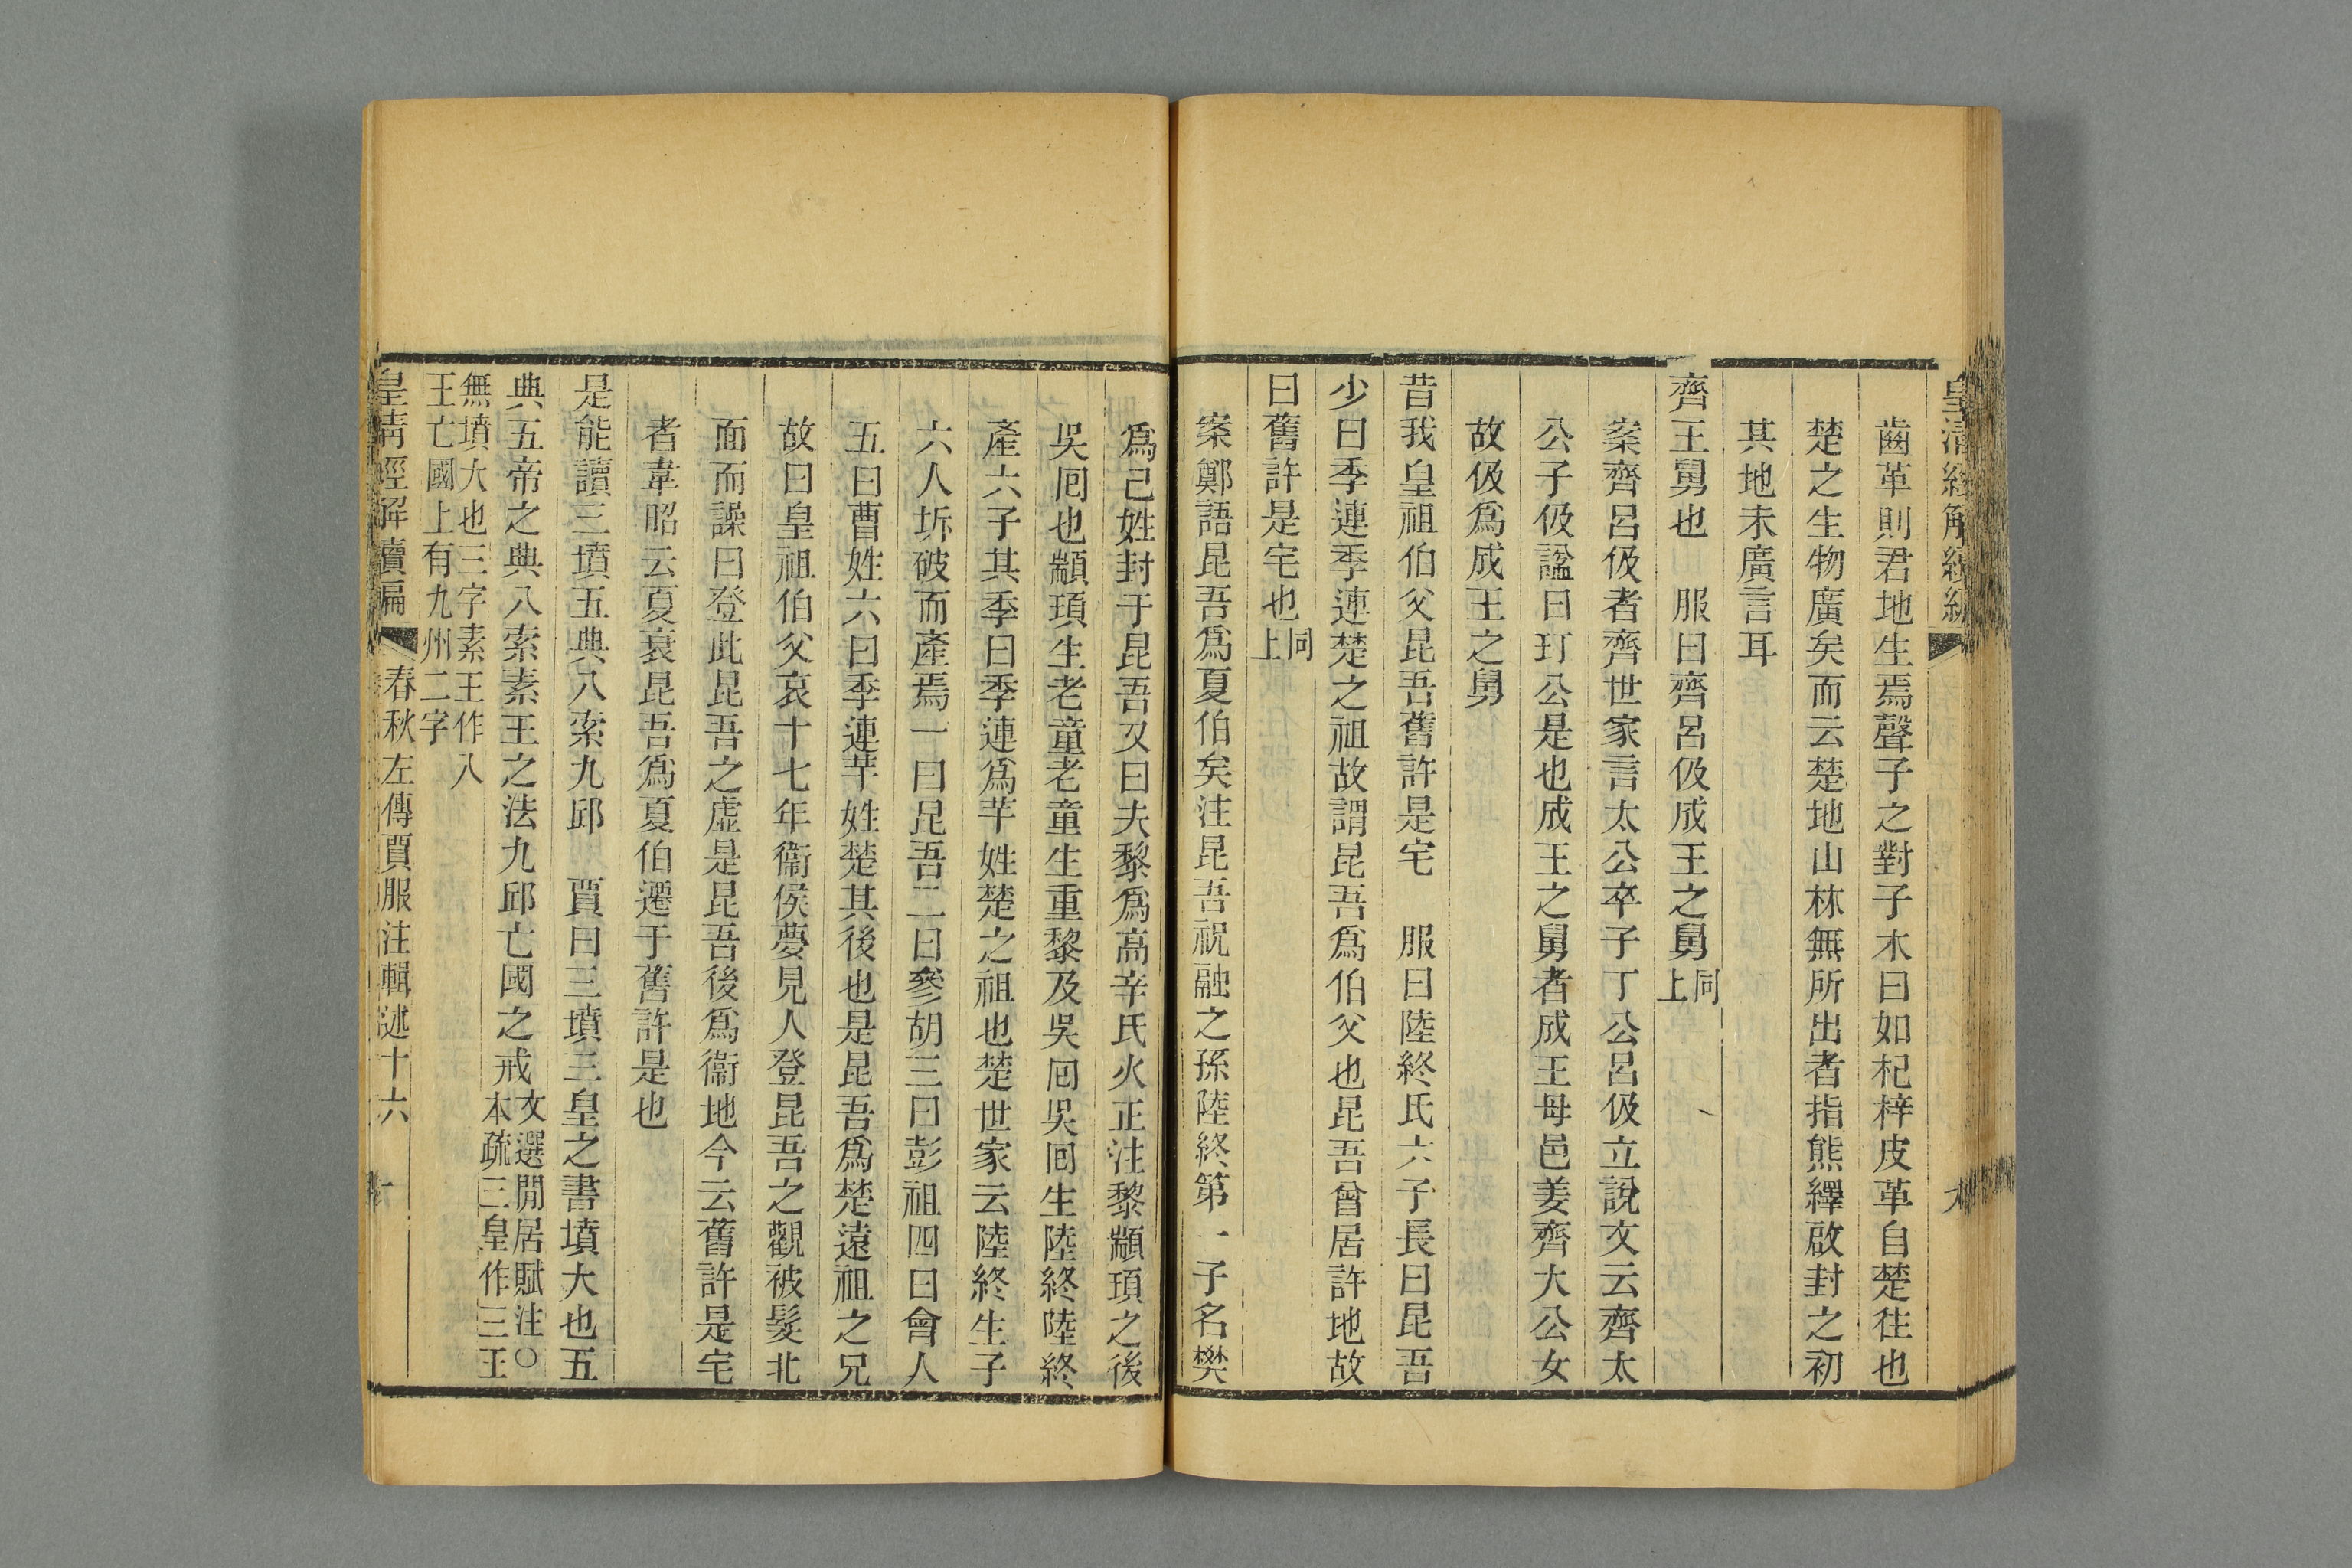 齒革則君地生焉聲子之對子木曰如杞梓皮革自楚往也
楚之生物廣矣而云楚地山林無所出者指熊繹啟封之初
其地未廣言耳
齊王舅也　服曰齊呂伋成王之舅同上
案齊呂伋者齊世家言太公卒子丁公呂伋立說文云齊太
公子伋諡曰玎公是也成王之舅者成王母邑姜齊大公女
故伋爲成王之舅
昔我皇祖伯父昆吾舊許是宅　服曰陸終氏六子長曰昆吾
少曰季連季連楚之祖故謂昆吾爲伯父也昆吾曾居許地故
曰舊許是宅也同上
案鄭語昆吾爲夏伯矣注昆吾祝融之孫陸終第一子名樊
爲己姓封于昆吾又曰夫黎爲高辛氏火正注黎顓頊之後
吳回也顓頊生老童老童生重黎及吳回吳回生陸終陸終
產六子其季曰季連爲芊姓楚之祖也楚世家云陸終生子
六人坼破而產焉一曰昆吾二曰參胡三曰彭祖四曰會人
五曰曹姓六曰季連芊姓楚其後也是昆吾爲楚遠祖之兄
故曰皇祖伯父哀十七年衞侯夢見人登昆吾之觀被髮北
面而譟曰登此昆吾之虛是昆吾後爲衞地今云舊許是宅
者韋昭云夏衰昆吾爲夏伯遷于舊許是也
是能讀三墳五典八索九邱　賈曰三墳三皇之書墳大也五
典五帝之典八索素王之法九邱亡國之戒文選閒居賦注○本疏三皇作三王
無墳大也三字素王作入王亡國上有九州二字
皇清經解續編　春秋左傳賈服注輯述十六